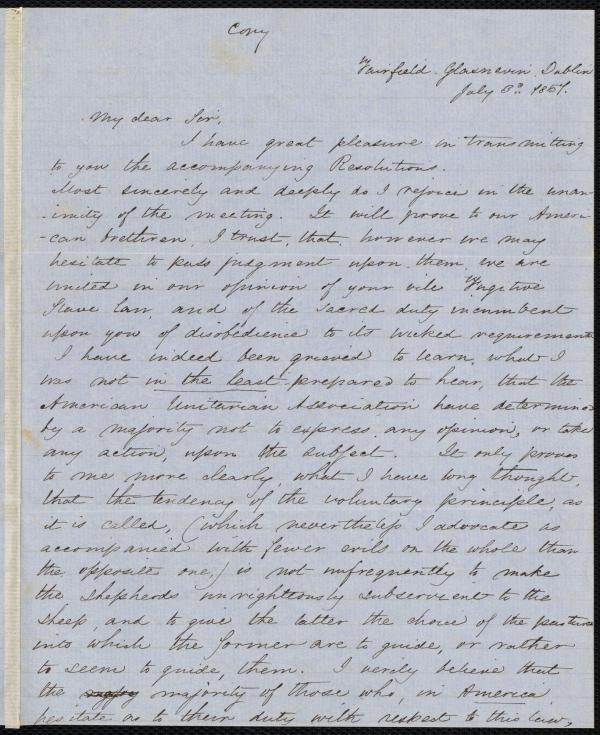 Copy
Fairfield. Glasnevin. Dublin
July 3d. 1851.
My dear Sir,
I have great pleasure in transmitting
to you the accompanying Resolutions.
Most sincerely and deeply do I rejoice in the unan-
-imity of the meeting. It will prove to our Ameri-
-can brethren, I trust, that, however we may
hesitate to pass judgment upon them, we are
united in our opinion of your vile Fugitive
Slave Law, and of the sacred duty incumbent
upon you of disobedience to its wicked requirements
I have indeed been grieved to learn, what I
was not in the least prepared to hear, that the
American Unitarian Association have determined
by a majority not to express any opinion, or take
any action, upon the subject. It only proves
to me more clearly, what I have long thought,
that the tendency of the voluntary principle, as
it is called, (which nevertheless I advocate as
accompanied with fewer evils on the whole than
the opposite one,) is not unfrequently to make
the Shepherds unrighteously subservient to the
Sheep, and to give the latter the choice of the pastures
into which the former are to guide, or rather
to seem to guide, them. I verily believe that
the majority of those who, in America,
hesitate as to their duty with respect to this law,